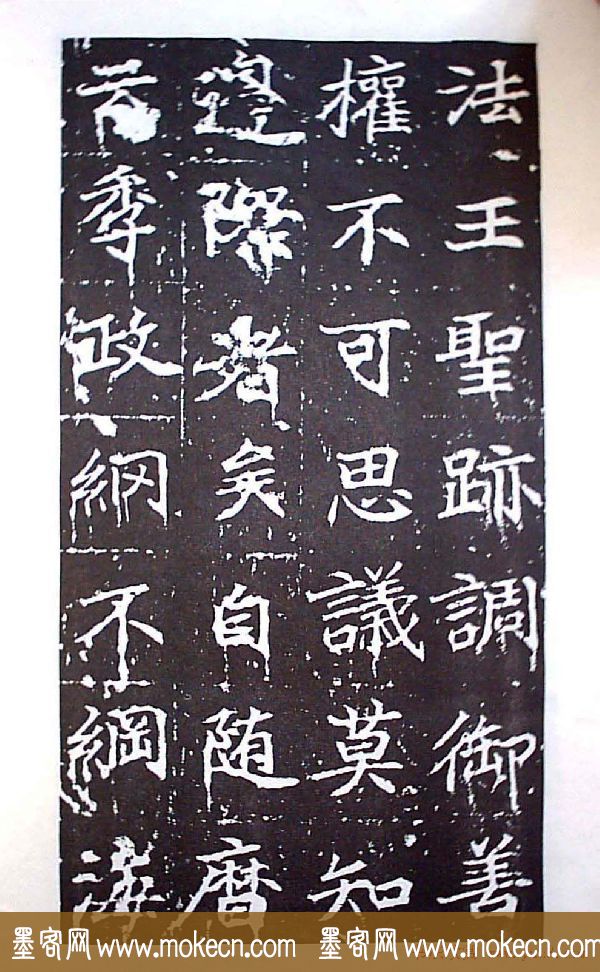 法王聖跡調御善
權不可思議莫知
邊際者矣自随曆
季政網不綱海
墨客网 www.mokecn.com 墨客网 www.mokecn.com